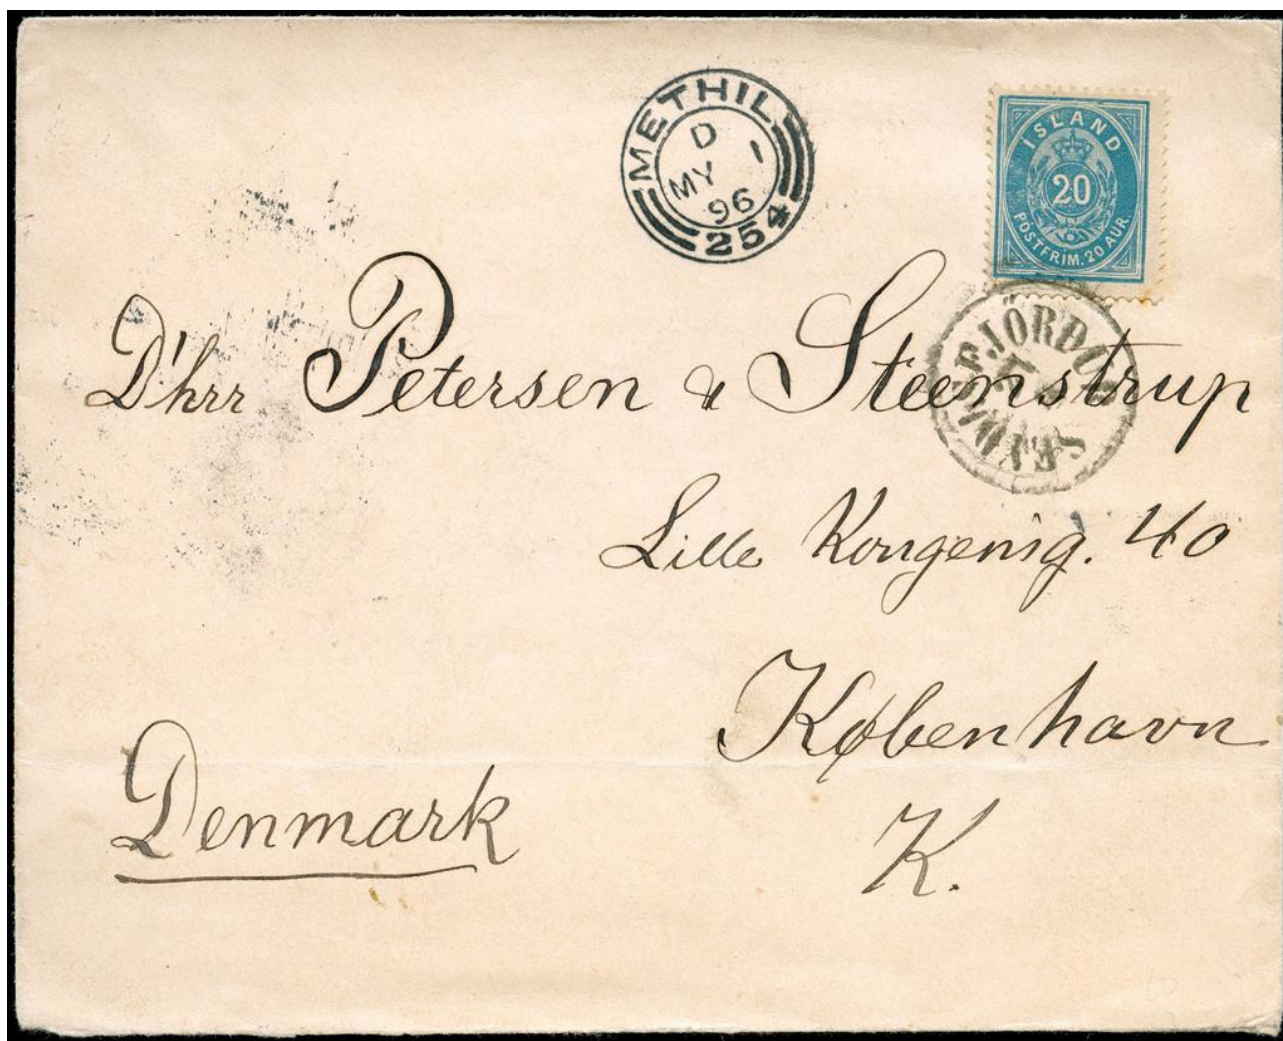 METHIL
D 1
MY
96
254
ISLAND
20
POSTFRIM. 20 AUR.
SEYDISFJÖRDUR
D'hrr Petersen & Steenstrup
Lille Kongensg. 40
København
K.
Denmark